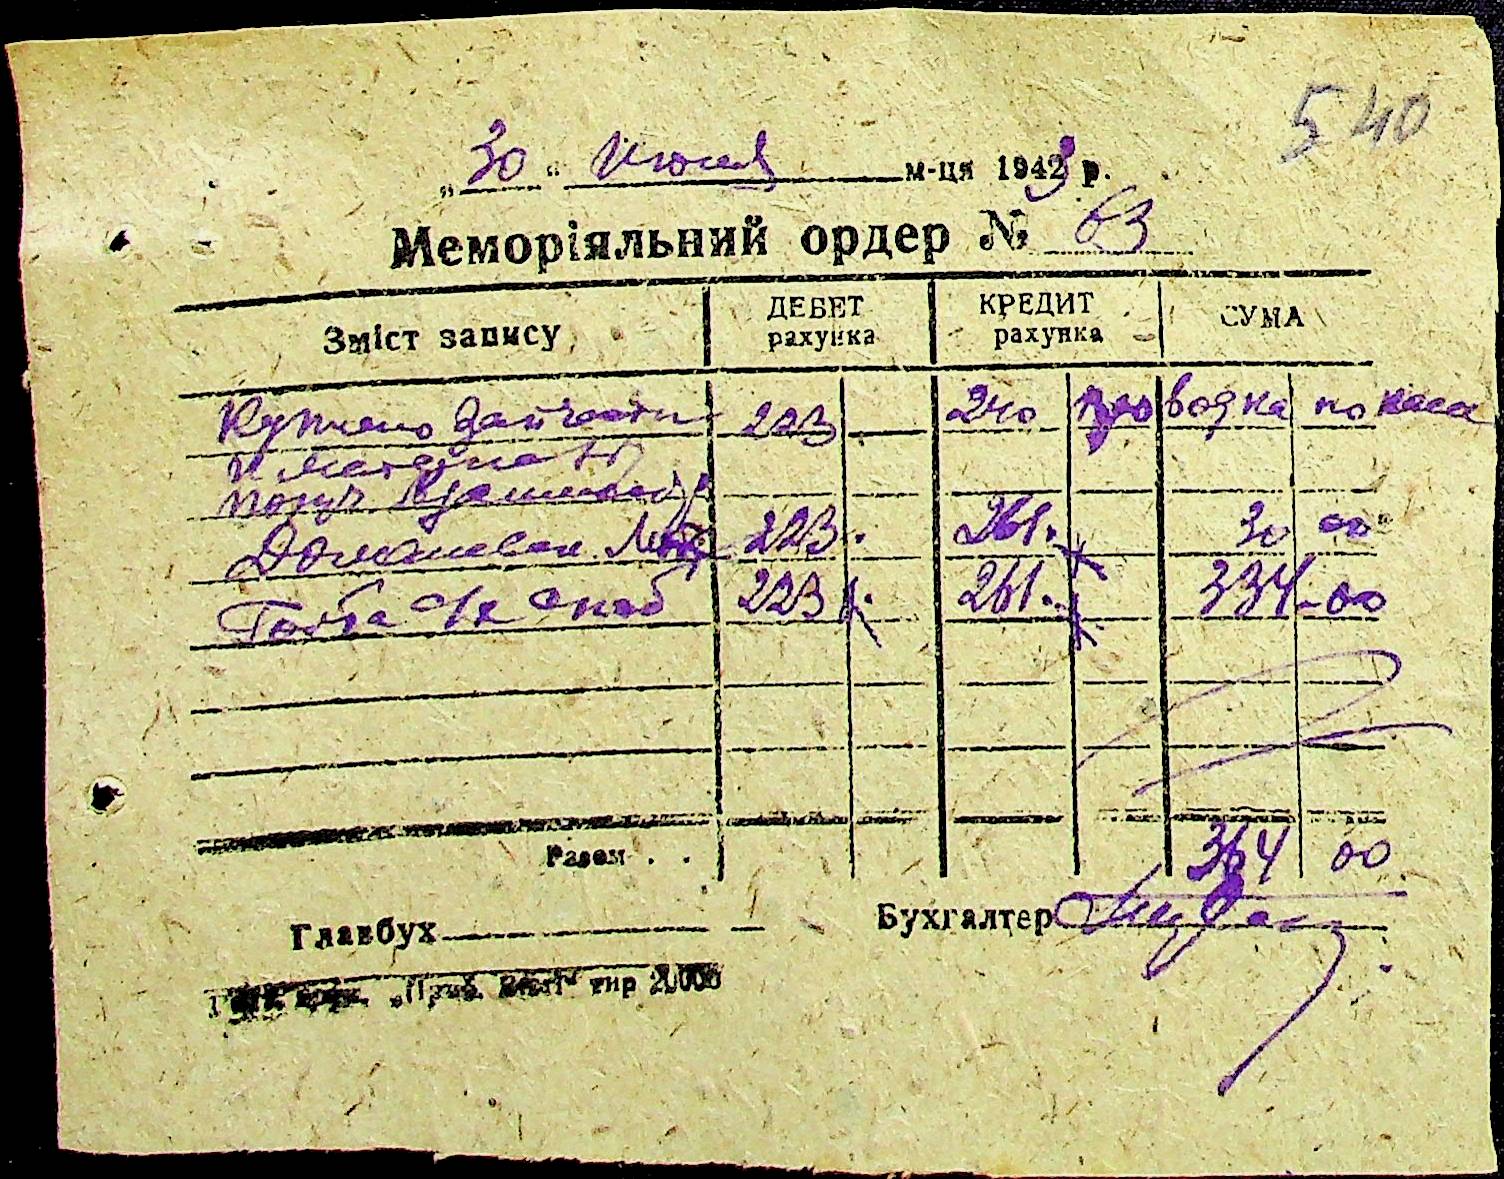 540
„30“ июня м-ця 1943 р.
Меморіяльний ордер № 63
Зміст запису ДЕБЕТ рахунка КРЕДИТ рахунка СУМА
Куплено Запчасти 223 240 проводка по кассе
и материалы
223. 261. 30 00
223. 261. 334-00
Разом . . 364 00
Главбух Бухгалтер
тир 20.000